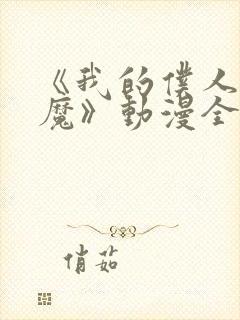 《我的僕人
魔》動漫全
俏茹